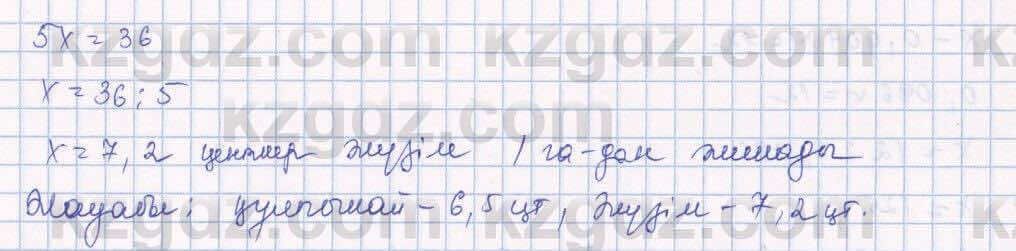 5x = 36
x = 36 : 5
x = 7,2 центнер жүзім 1 га-дан жинады
Жауабы: құлпынай - 6,5 цт, жүзім - 7,2 цт.
kzgdz.com kzgdz.com
kzgdz.com
kzgdz.com kzgdz.com